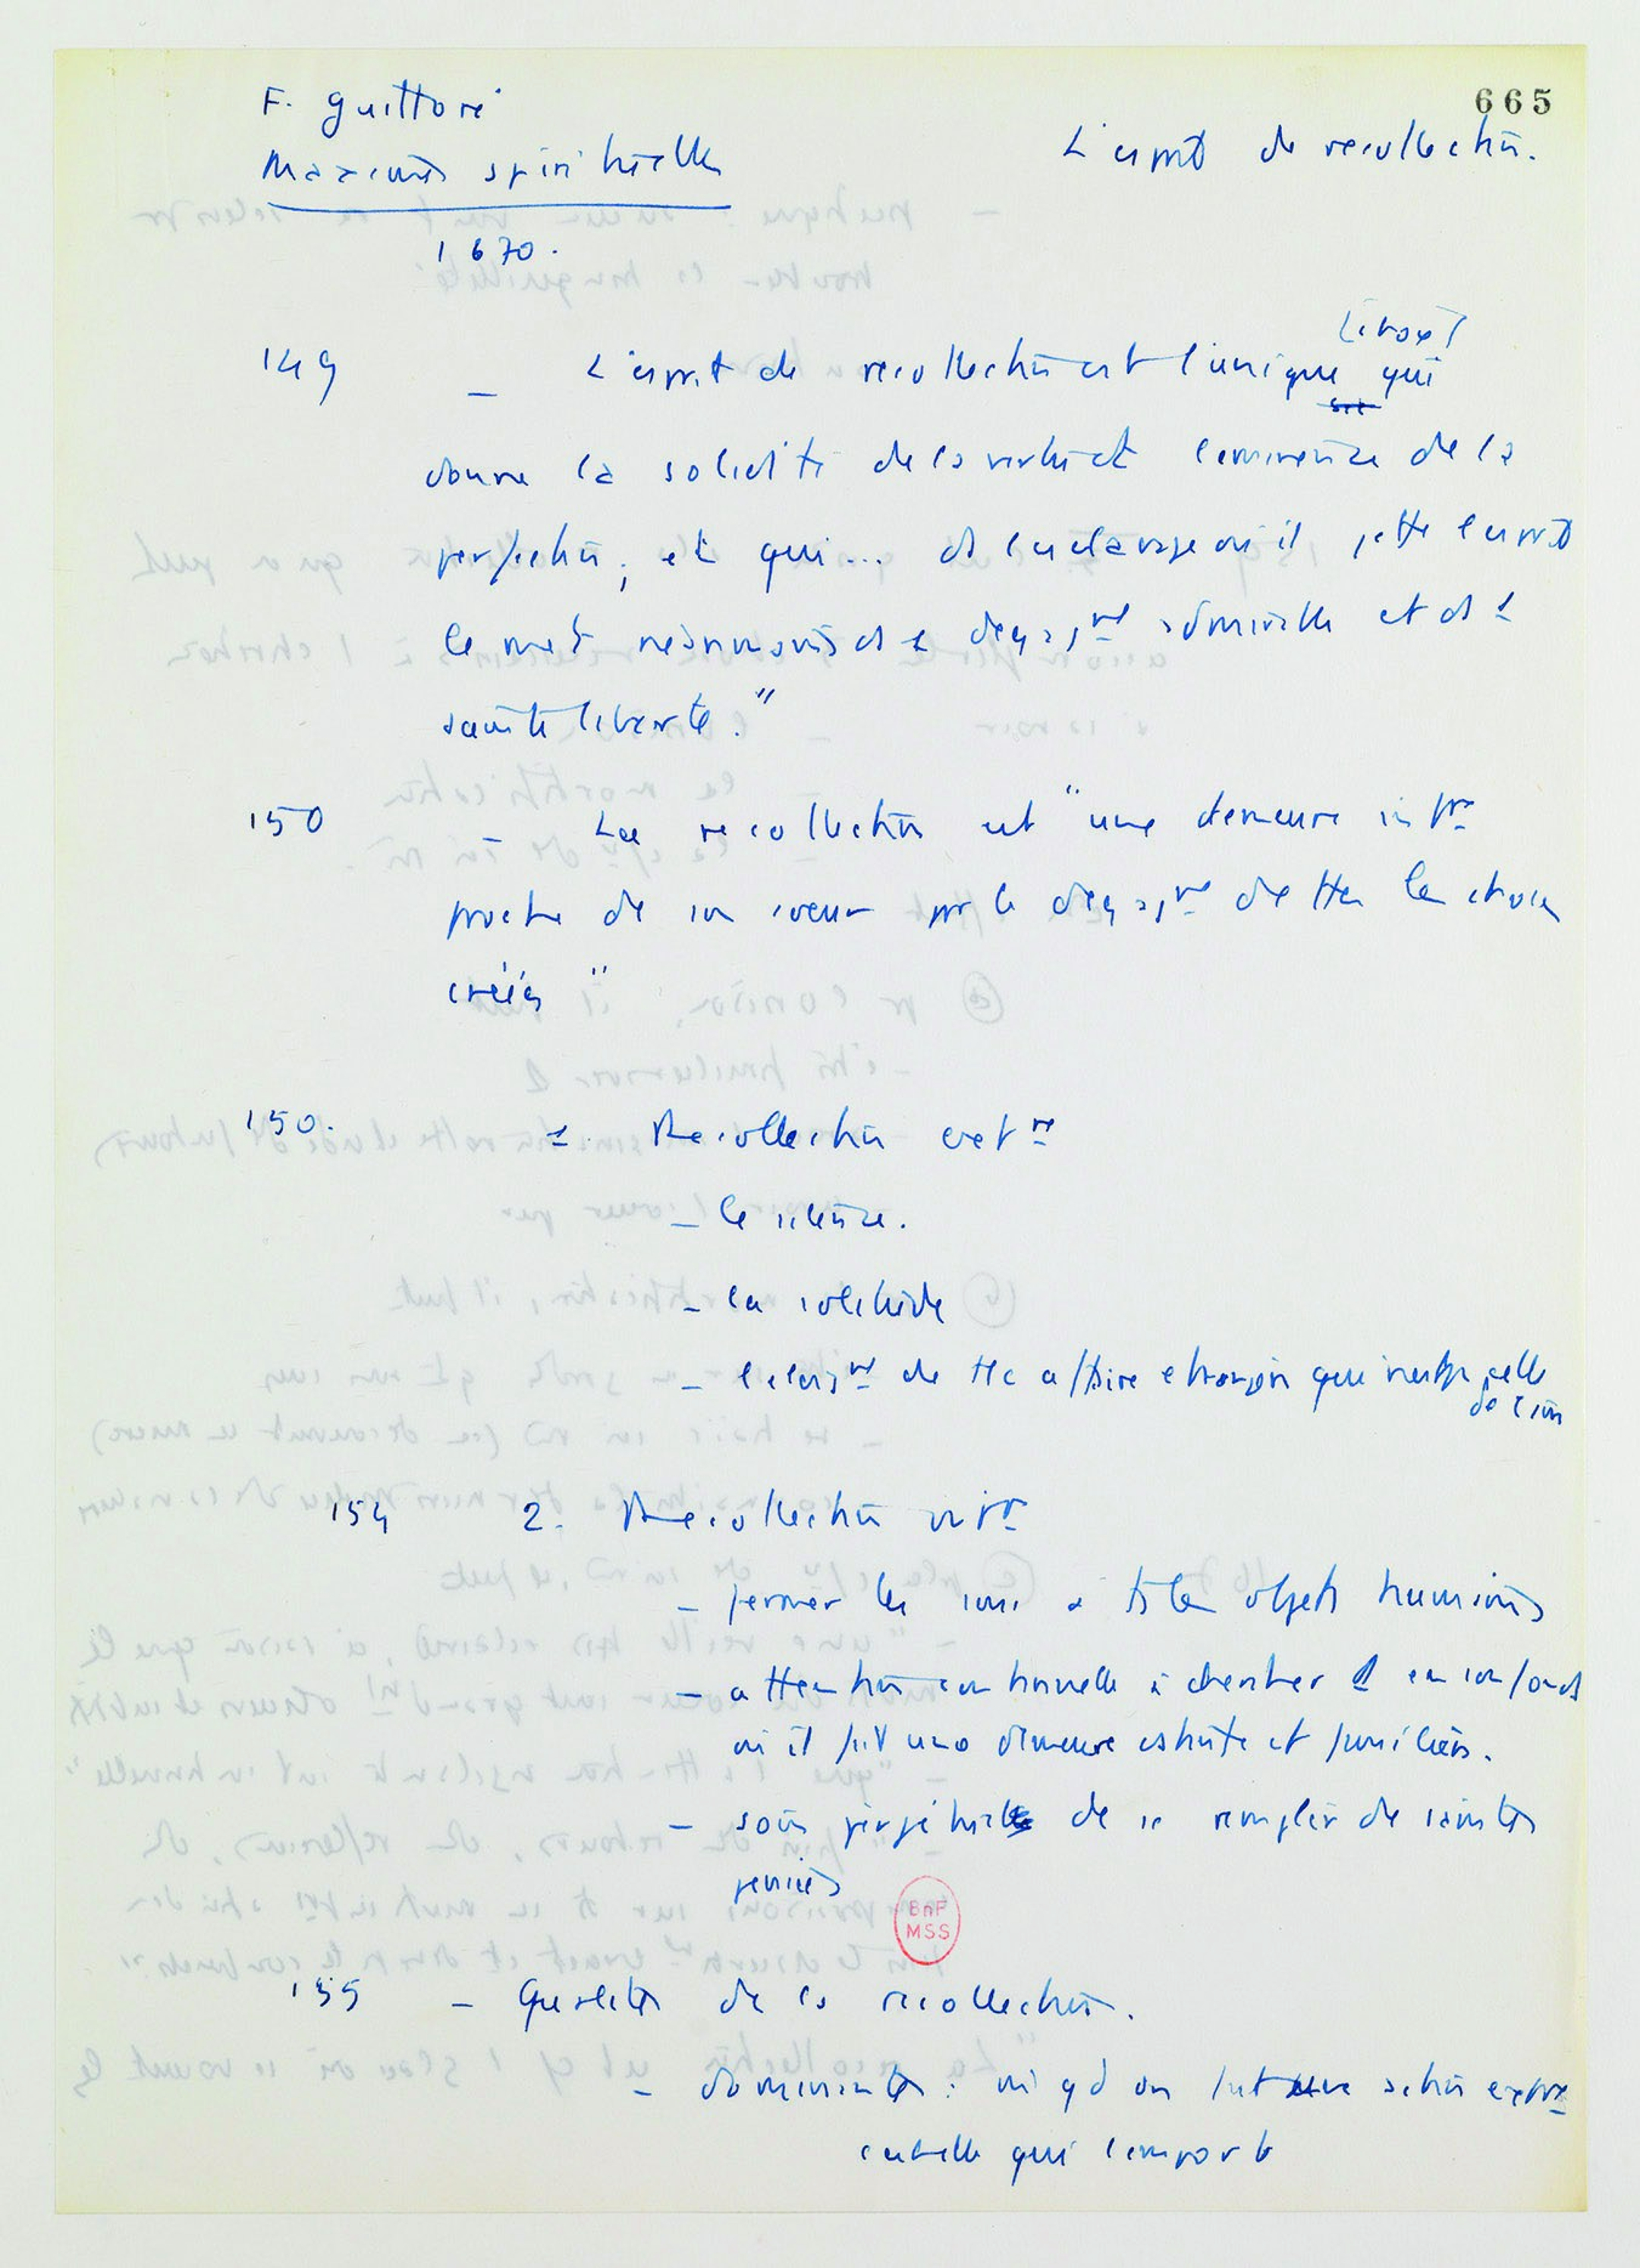 665
F. Guilloré
Maximes spirituelles
L'esprit de recollection.
1670.
149 – L'esprit de recollection est l'unique qui
donne la solidité de la vertu et l'eminence de la
perfection ; et qui... ds l'esclavage où il jette l'esprit
le met neanmoins ds 1 degagmt admirable et ds 1
sainte liberté."
150 – La recollection est "une demeure intre
proche de son coeur pr le degagmt de ttes les choses
créées"
150. 1. Recollection extre
– le silence.
– la solitude
– l'eloigmt de tte affaire etrangère que n'est pas celle
de l'ion
154 2. Recollection intre
– fermer les sens à ts les objets humains
– attention continuelle à chercher D en son fonds
où il fait une demeure estroite et familière.
– soin perpétuel de se remplir de saintes
pensées
BnF
MSS
155 – Qualités de la recollection.
– dominante : mm qd on fait une action extre
c'est elle qui l'emporte